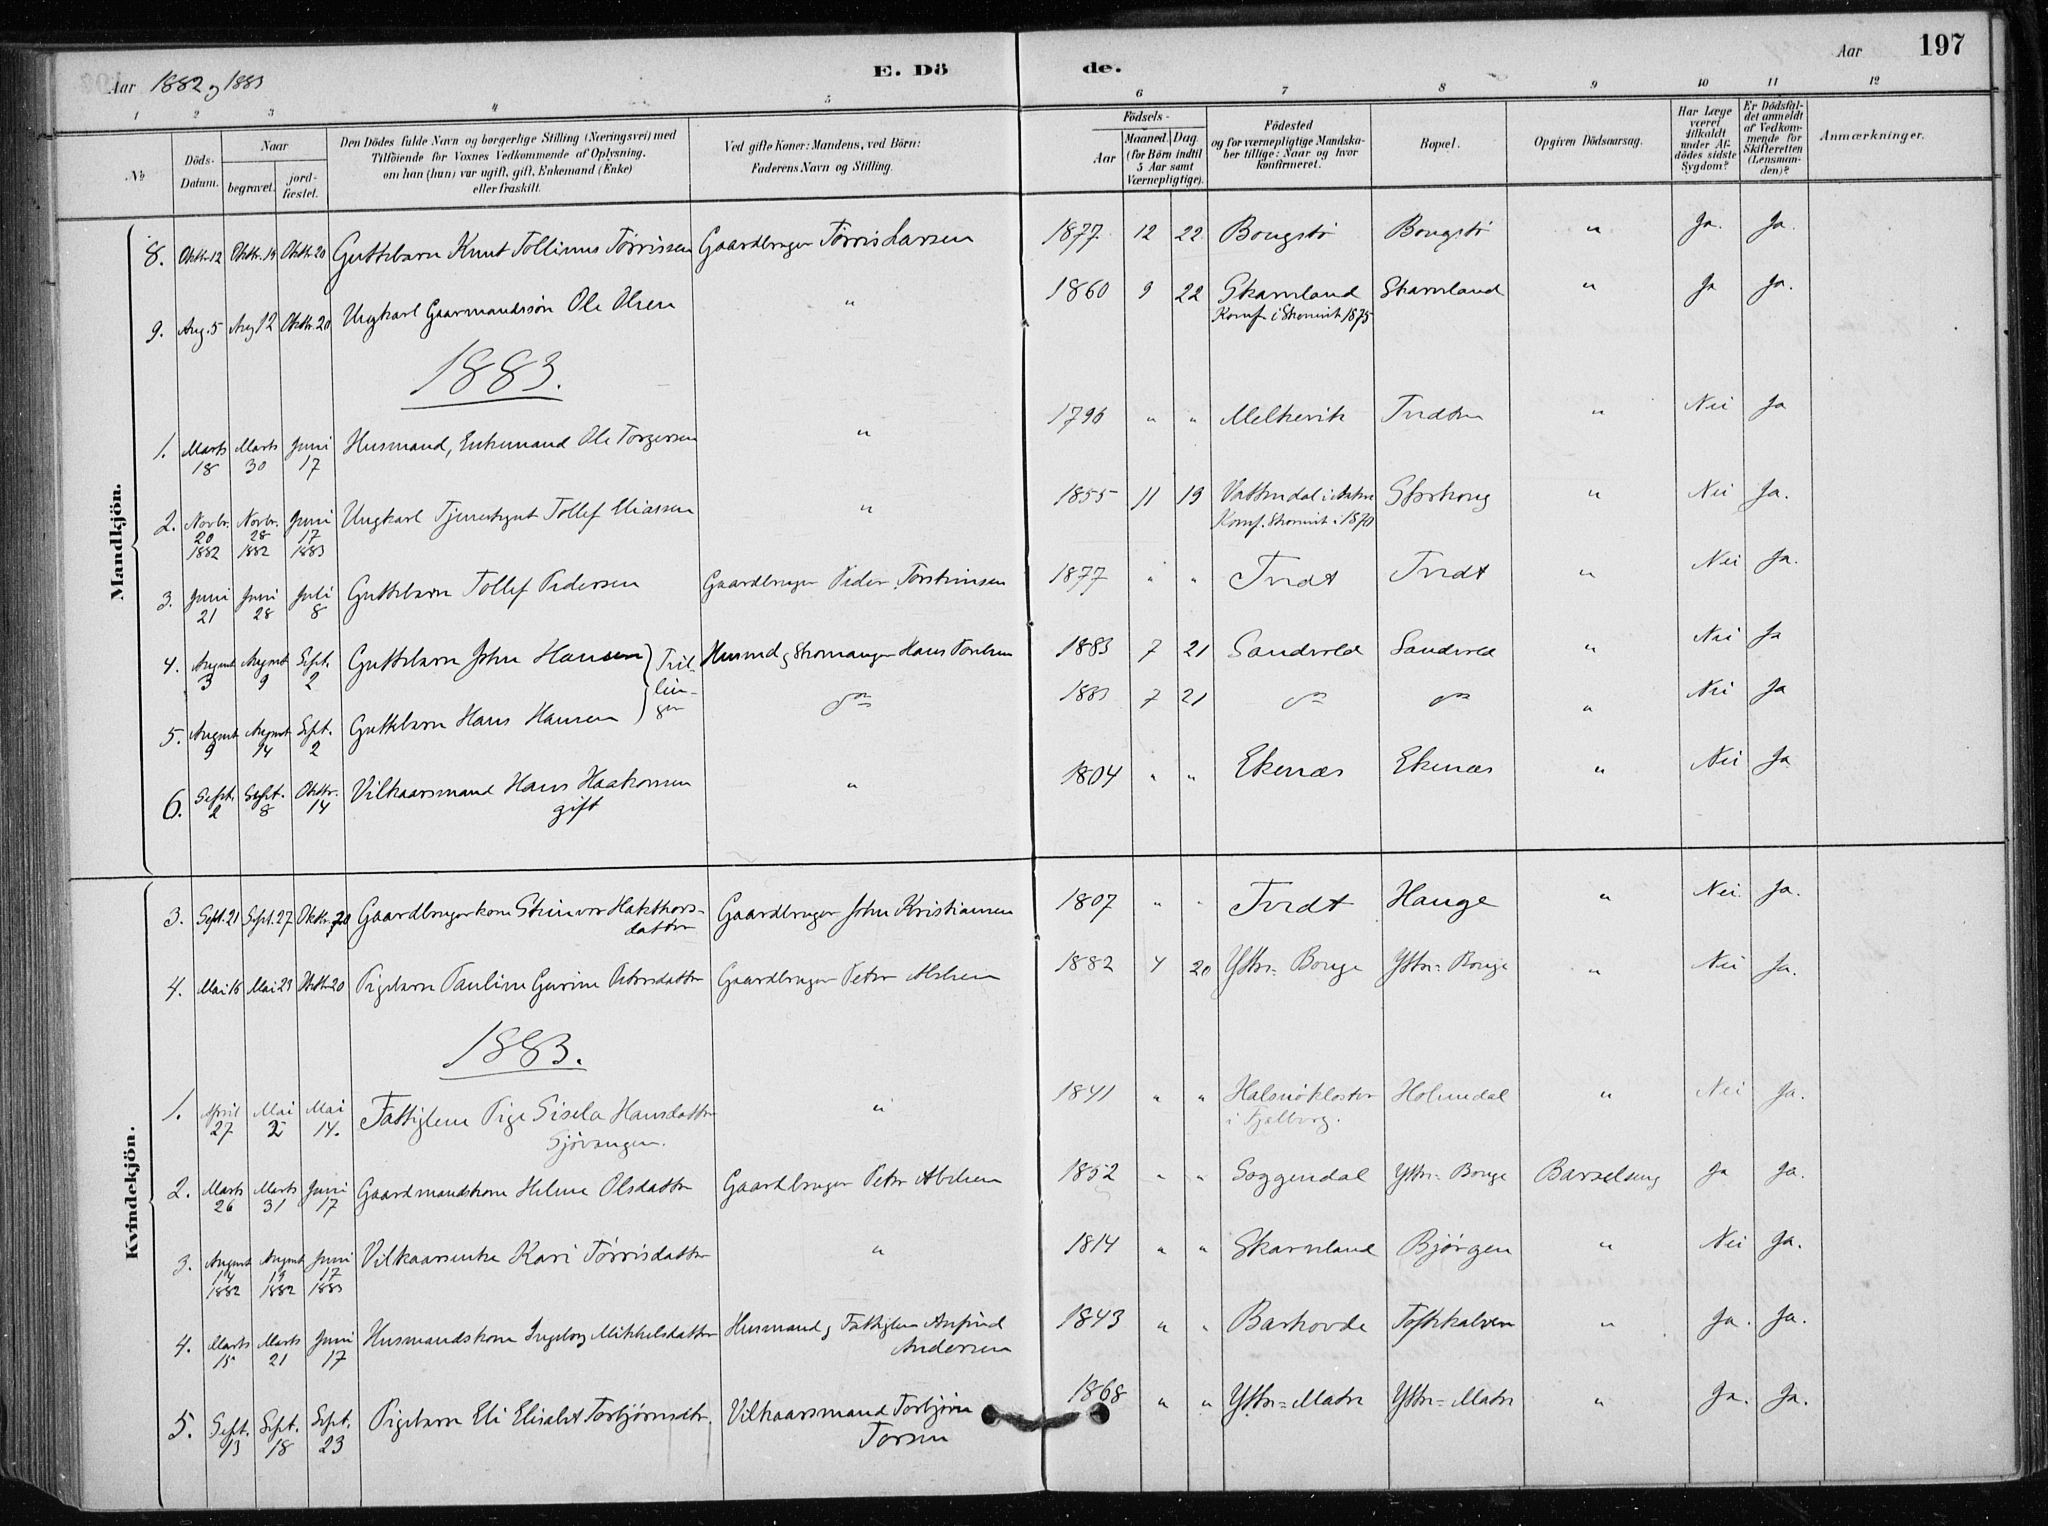 Aar 1882 og 1883
E. Dö
de.
Aar
197
1 2 3 4 5 6 7 8 9 10 11 12
No
Döds-Datum.
Naar
begravet.
jordfæstet.
Den Dödes fulde Navn og borgerlige Stilling (Næringsvei) med
Tilföiende for Voxnes Vedkommende af Oplysning,
om han (hun) var ugift, gift, Enkemand (Enke)
eller fraskilt.
Ved gifte Koner: Mandens, ved Börn:
Faderens Navn og Stilling.
Födsels-
Aar
Maaned. Dag.
(for Börn indtil
5 Aar samt
Værnepligtige).
Födested
og for værnepligtige Mandska-
ber tillige: Naar og hvor
konfirmeret.
Bopæl.
Opgiven Dödsaarsag.
Har Læge
været
tilkaldt
under Af-
dödes sidste
Sygdom?
Er Dödsfal-
det anmeldt
af Vedkom-
mende for
Skifteretten
(Lensman-
den)?
Anmærkninger.
Mandkjön.
8. Oktbr. 12 Oktbr. 19 Oktbr. 20 Guttebarn Knut Tollinus Tørrissen Gaardbruger Tørris Larsen 1877 12 22 Bougstø Bougstø " Ja. Ja.
9. Aug. 5 Aug 12 Oktbr. 20 Ungkarl Gaarmandssøn Ole Olsen " 1860 9 22 Skarveland Skarveland " Ja Ja.
Konf. i Skonevik 1875
1883.
1. Marts 18 Marts 30 Juni 17 Husmand, Enkemand Ole Torgersen " 1796 " " Melkevik Tvedten " Nei Ja
2. Novbr. 20 1882 Novbr. 28 1882 Juni 17 1883 Ungkarl Tjenestegut Tollef Eliassen " 1855 11 19 Vattendal i " Nei Ja.
Konf. Skonevik i 1870
3. Juni 21 Juni 28 Juli 8 Guttebarn Tollef Pedersen Gaardbruger Peder Torsteinsen 1877 " " Tvedt Tvedt " Nei Ja.
4. August 3 August 9 Sept. 2 Guttebarn John Hansen Husmd og Skomager Hans 1883 7 21 Sandvold Sandvold " Nei Ja
Tvil-
lin-
ger
5. August 9 August 14 Sept. 2 Guttebarn Hans Hansen do 1883 7 21 do do " Nei Ja
6. Sept. 2 Sept. 8 Oktbr. 14 Vilkaarsmand Hans Haakonsen " 1804 " " Ekenæs Ekenæs " Nei Ja
gift
Kvindekjön.
3. Sept. 21 Sept. 27 Oktbr. 20 Gaardbrugerkone Steinvor Hakthors- Gaardbruger John Kristiansen 1807 " " Tvedt Hauge " Nei Ja.
datter
4. Mai 16 Mai 23 Oktbr 20 Pigebarn Pauline Gurine Petersdatter Gaardbruger Peter Abelsen 1882 4 20 Ytter=Bouge Ytter=Bouge " Nei Ja.
1883.
1. April 27 Mai 2 Mai 14. Fattiglem Pige Sisela Hansdatter " 1841 " " Halsnökloster Holmedal " Nei Ja.
Sjøvangen. i Fjelberg.
2. Marts 26 Marts 31 Juni 17 Gaardmandskone Helene Olsdatter Gaardbruger Peter Abelsen 1852 " " Soggendal Ytter=Bouge Barselseng Ja Ja.
3. August 14 1882 August 19 1882 Juni 17 1883 Vilkaarsenke Kari Tørrisdatter " 1814 " " Skarveland Bjørgen " Nei Ja.
4. Marts 15 Marts 21 Juni 17 Husmandskone Ingeborg Mikkelsdatter Husmand og Fattiglem Anfind 1843 " " Barhovde Toftekalven " Ja. Ja.
Andersen
5. Sept. 13 Sept. 18 Sept. 23 Pigebarn Eli Elisabet Torbjørnsdtr. Vilkaarsmand Torbjørn 1868 " " Ytter=Matre Ytter=Matre " Ja. Ja.
Torsen